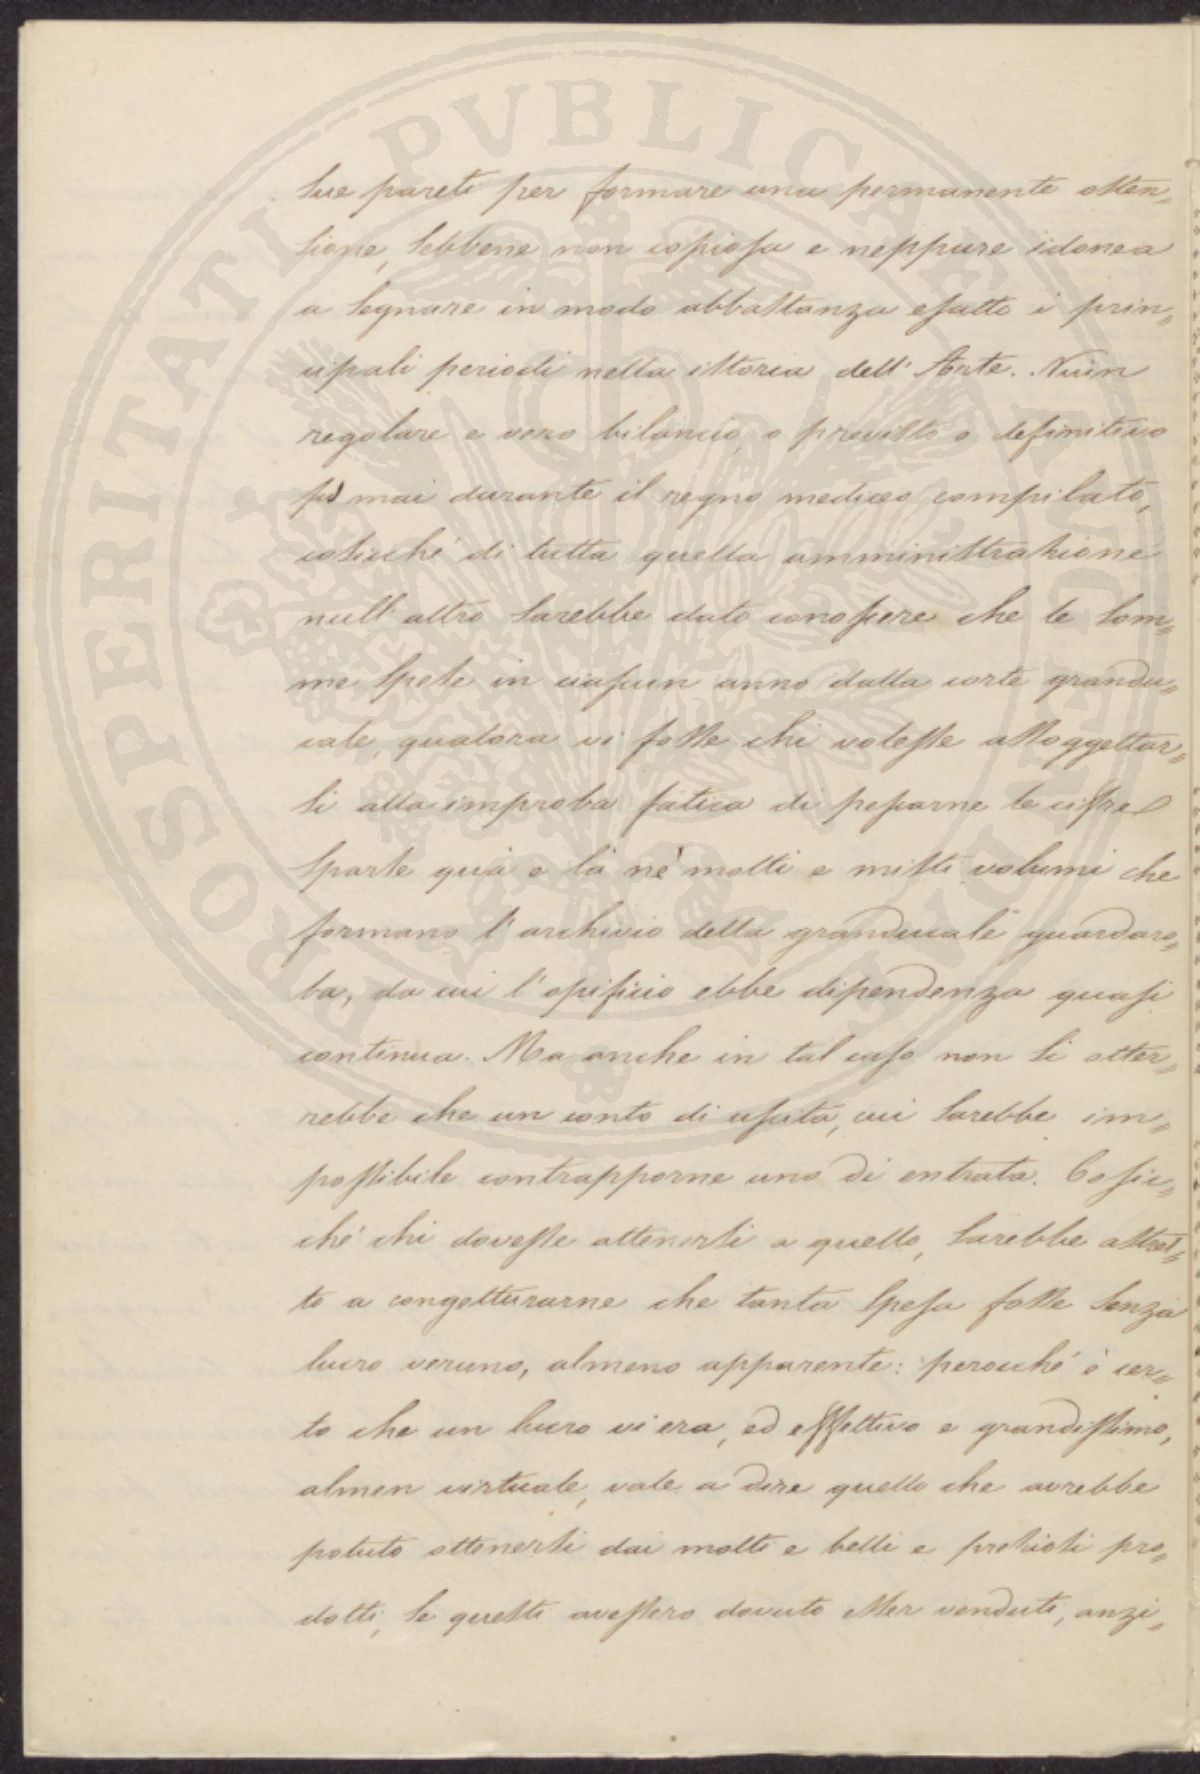 PROSPERITATI PVBLICAE AVGENDAE
sue pareti per formare una permanente osten=
sione, sebbene non copiosa e neppure idonea
a segnare in modo abbastanza esatto i prin=
cipali periodi nella istoria dell' Arte. Niun
regolare e vero bilancio o previsto o definitivo
fu mai durante il regno mediceo compilato,
cosicché di tutta quella amministrazione
null' altro sarebbe dato conoscere che le som=
me spese in ciascun anno dalla corte grandu=
cale, qualora vi fosse chi volesse assoggettar=
si alla improba fatica di pescarne le cifre
sparse quà e là nè molti e misti volumi che
formano l' archivio della granducale guardaro=
ba, da cui l' opificio ebbe dipendenza quasi
continua. Ma anche in tal caso non si otter=
rebbe che un conto di uscita, cui sarebbe im=
possibile contrapporne uno di entrata. Cosic=
ché chi dovesse attenersi a quello, sarebbe astret=
to a congetturarne che tanta spesa fosse senza
lucro veruno, almeno apparente: perocché è cer=
to che un lucro vi era, ed effettivo e grandissimo,
almen virtuale, vale a dire quello che avrebbe
potuto ottenersi dai molti e belli e preziosi pro=
dotti, se questi avessero dovuto esser venduti, anzi=